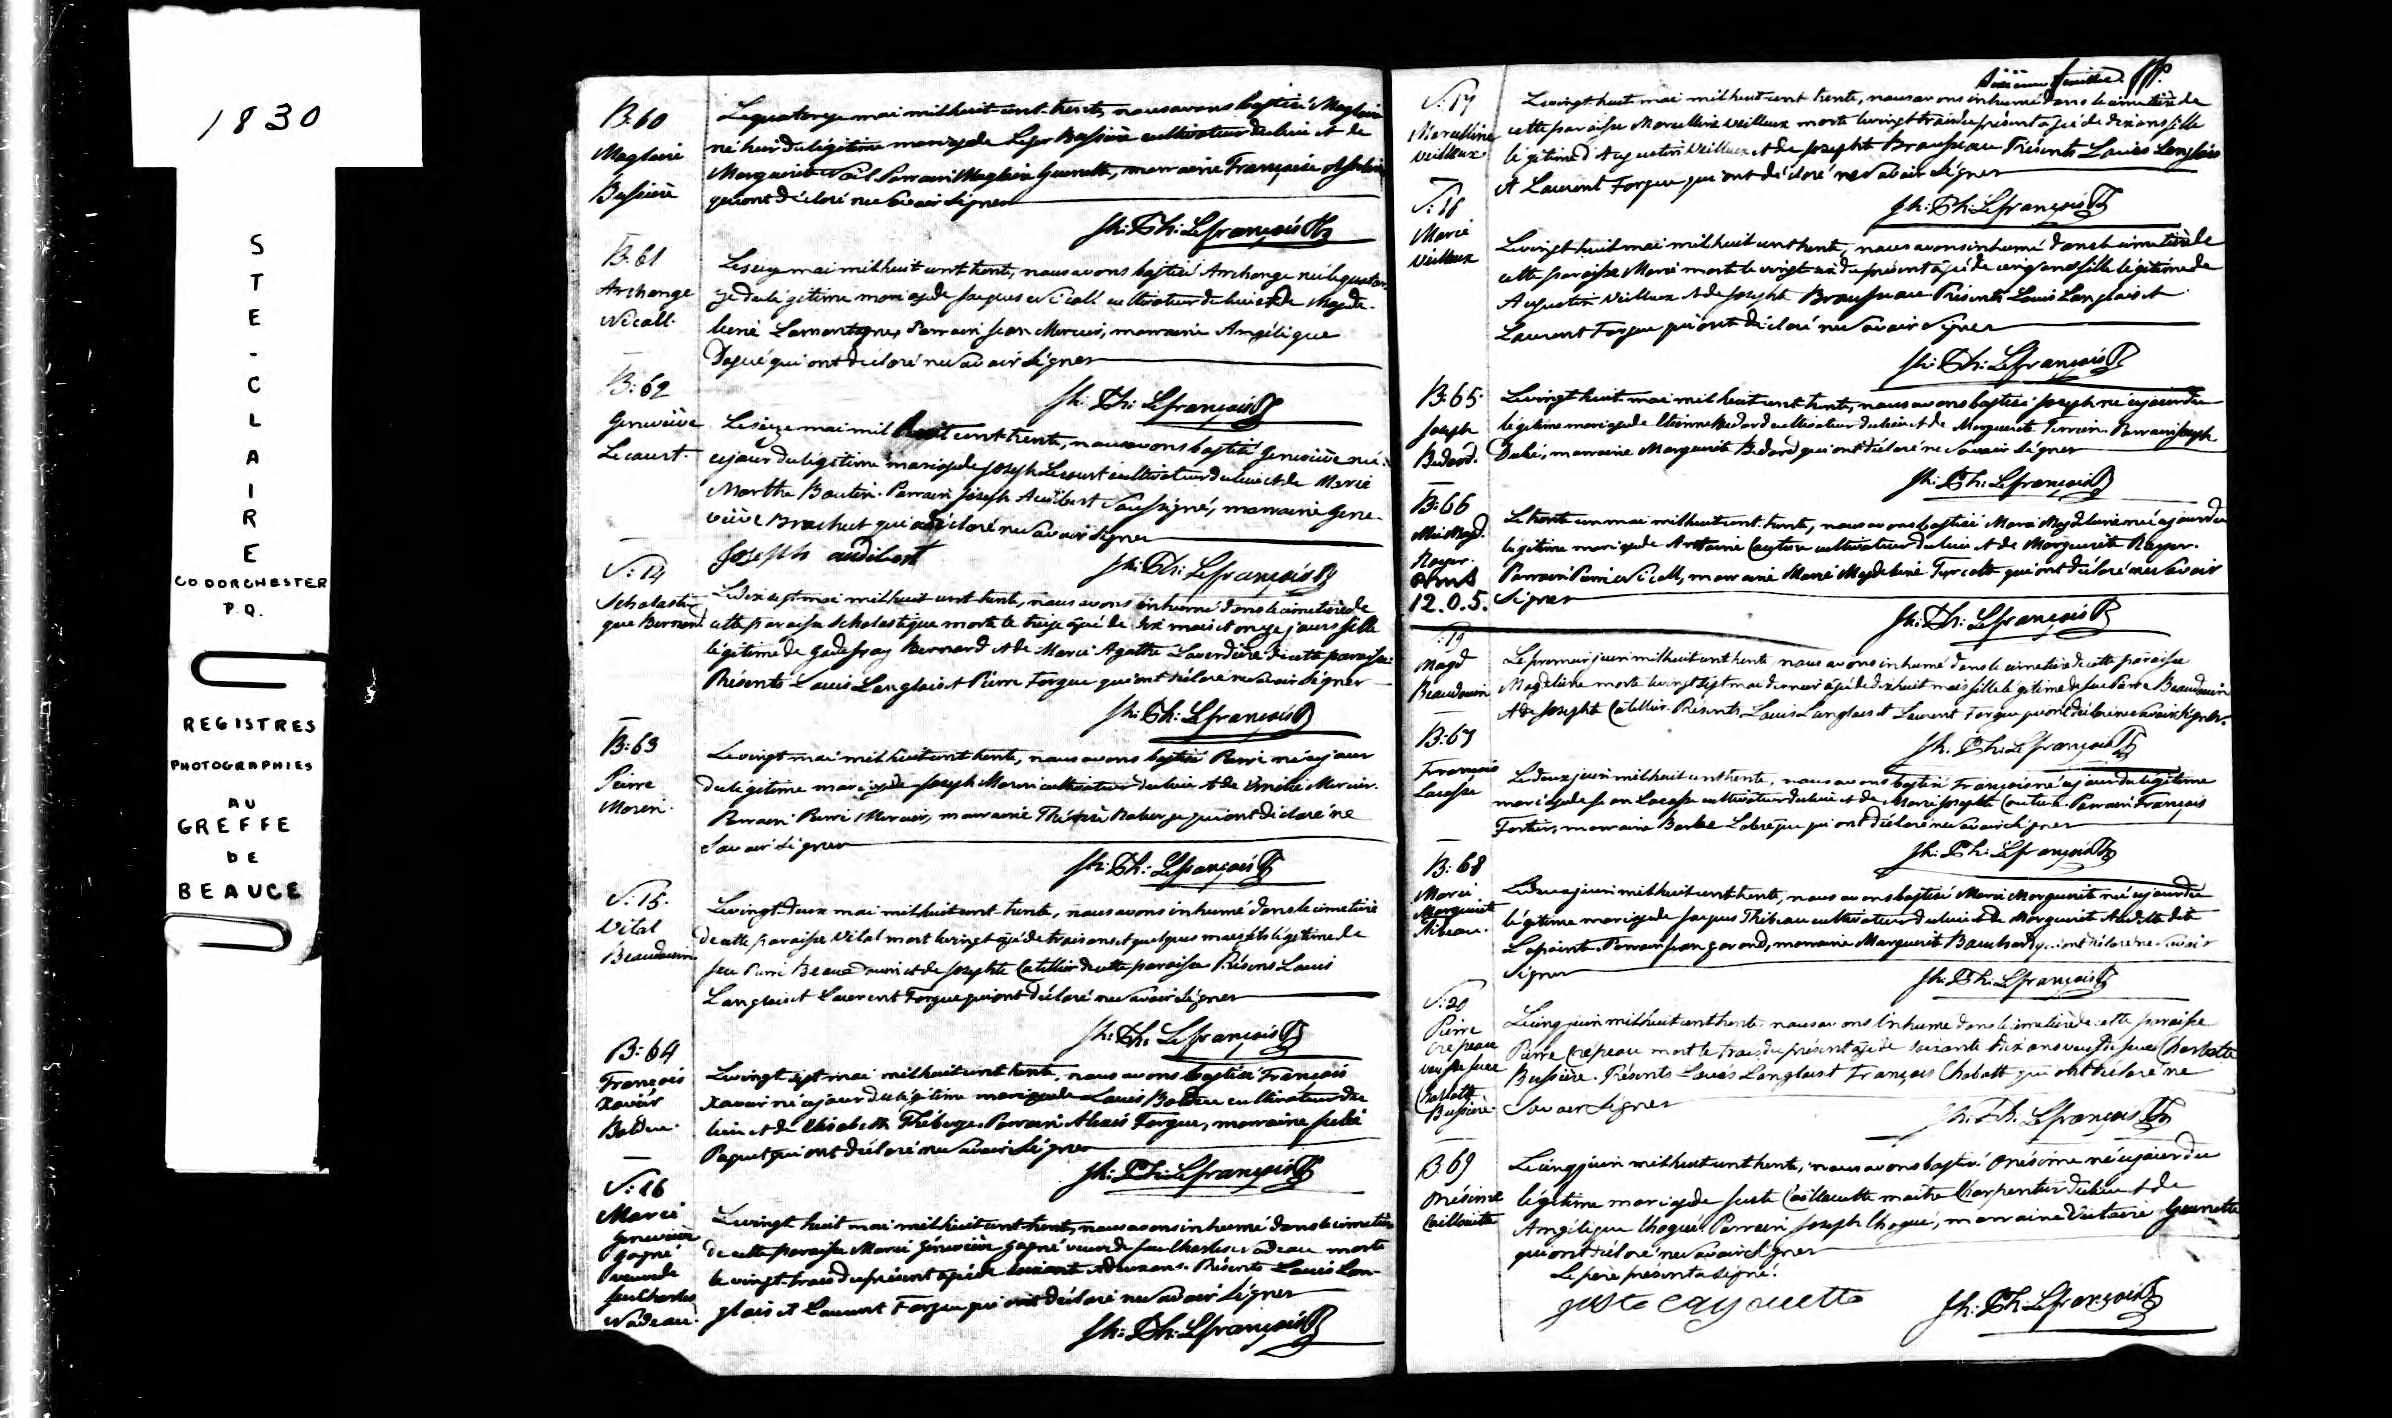 1830
S
T
E
-
C
L
A
I
R
E
CO DORCHESTER
P.Q.
REGISTRES
PHOTOGRAPHIES
AU
GREFFE
DE
BEAUCE
B:60
Magloire
Bussière
Le quatorze mai mil huit cent trente, nous avons baptisé Magloire
né hier du légitime mariage de Leger Bussière cultivateur du lieu et de
Marguerite Parrain Magloire Gounette, marraine Françoise
qui ont déclaré ne savoir signer
Jh: Th: Lefrançois
B:61
Archange
Nicoll.
Le seize mai mil huit cent trente, nous avons baptisé Archange né le quator-
ze du légitime mariage de Jacques Nicoll cultivateur du lieu et de Magde-
leine Lamontagne, Parrain Jean Mercier, marraine Angélique
qui ont déclaré ne savoir signer
Jh: Th: Lefrançois
B:62
Geneviève
Lecourt.
Le seize mai mil huit cent trente, nous avons baptisé Geneviève née
ce jour du légitime mariage de Joseph Lecourt cultivateur du lieu et de Marie
Marthe Boutin. Parrain Joseph Audibert soussigné, marraine Gene-
viève Brochet qui a déclaré ne savoir signer
Joseph audibert
Jh: Th: Lefrançois
S:14
Scholasti-
que Bernard.
Le dix sept mai mil huit cent trente, nous avons inhumé dans le cimetière de
cette paroisse Scholastique morte le treize âgée de dix mois et onze jours fille
légitime de Godefroy Bernard et de Marie Agathe Laverdière de cette paroisse.
Présents Louis Langlois et Pierre Forgue qui ont déclaré ne savoir signer
Jh: Th: Lefrançois
B:63
Pierre
Morin.
Le vingt mai mil huit cent trente, nous avons baptisé Pierre né ce jour
du légitime mariage de Joseph Morin cultivateur du lieu et de Emélie Mercier.
Parrain Pierre Mercier, marraine Thérèse qui ont déclaré ne
savoir signer
Jh: Th: Lefrançois
S:15.
Vital
Beaudouin
Le vingt-deux mai mil huit cent trente, nous avons inhumé dans le cimetière
de cette paroisse Vital mort le vingt âgé de trois ans et quelques mois fils légitime de
feu Pierre Beaudouin et de Josephte Catellier de cette paroisse Présens Louis
Langlois et Laurent Forgue qui ont déclaré ne savoir signer
Jh: Th: Lefrançois
B:64
François
Xavier
Bolduc.
Le vingt sept mai mil huit cent trente, nous avons baptisé François
Xavier né ce jour du légitime mariage de Louis Bolduc cultivateur du
lieu et de Elisabeth Théberge. Parrain Alexis Forgue, marraine Julie
Paquet qui ont déclaré ne savoir signer
Jh: Th: Lefrançois
S:16
Marie
Geneviève
Gagné
veuve de
feu Charles
Nadeau.
Le vingt huit mai mil huit cent trente, nous avons inhumé dans le cimetière
de cette paroisse Marie Géneviève Gagné veuve de feu Charles Nadeau morte
le vingt-trois du présent âgée de soixante et deux ans. Présents Louis Lan-
glois et Laurent Forgue qui ont déclaré ne savoir signer
Jh: Th: Lefrançois
feuillet.
S:17
Marcelline
Veilleux
Le vingt-huit mai mil huit cent trente, nous avons inhumé dans le cimetière de
cette paroisse Marcelline Veilleux morte le vingt trois du présent agée de dix ans fille
légitime d'Augustin Veilleux et de Josephte Présents Louis Langlois
et Laurent Forgue qui ont déclaré ne savoir signer
Jh: Th: Lefrançois
S:18
Marie
Veilleux
Le vingt-huit mai mil huit cent trente, nous avons inhumé dans le cimetière de
cette paroisse Marie morte le vingt six du présent âgée de cinq ans fille légitime de
Augustin Veilleux et de Josephte Présents Louis Langlois et
Laurent Forgue qui ont déclaré ne savoir signer
Jh: Th: Lefrançois
B:65.
Joseph
Bedard.
Le vingt-huit mai mil huit cent trente, nous avons baptisé Joseph né ce jour du
légitime mariage de Etienne Bedard cultivateur du lieu et de Marguerite Parrain Joseph
marraine Marguerite Bedard qui ont déclaré ne savoir signer
Jh: Th: Lefrançois
B:66
Mie Magd.
12.0.5.
Le trente un mai mil huit cent trente, nous avons baptisé Marie Magdeleine née ce jour du
légitime mariage de Antoine cultivateur du lieu et de Marguerite
Parrain Pierre Nicoll, marraine Marie Magdeleine Turcotte qui ont déclaré ne savoir
signer
Jh: Th: Lefrançois
S:19
Magd
Beaudouin
Le premier juin mil huit cent trente, nous avons inhumé dans le cimetière de cette paroisse
Magdeleine morte le vingt sept mai dernier âgée de dix huit mois fille légitime de feu Pierre Beaudouin
et de Josephte Catellier. Présents Louis Langlois et Laurent Forgue qui ont déclaré ne savoir signer.
Jh: Th: Lefrançois
B:67
François
Lacasse
Le deux juin mil huit cent trente, nous avons baptisé François né ce jour du légitime
mariage de Jean Lacasse cultivateur du lieu et de Marie Josephte Couture. Parrain François
Fortier, marraine Barbe qui ont déclaré ne savoir signer
Jh: Th: Lefrançois
B:68
Marie
Marguerite
Le deux juin mil huit cent trente, nous avons baptisé Marie Marguerite née ce jour du
légitime mariage de Jacques cultivateur du lieu et de Marguerite Audette dit
Lapointe. Parrain Jean marraine Marguerite qui ont déclaré ne savoir
signer
Jh: Th: Lefrançois
S:20
Pierre
Crépeau
veuf de feue
Charlotte
Bussière.
Le cinq juin mil huit cent trente, nous avons inhumé dans le cimetière de cette paroisse
Pierre Crépeau mort le trois du présent âgé de soixante dix ans veuf de feue Charlotte
Bussière. Présents Louis Langlois et François Chabott qui ont déclaré ne
savoir signer
Jh: Th: Lefrançois
B:69
Onésime
Caillouette
Le cinq juin mil huit cent trente, nous avons baptisé Onésime né ce jour du
légitime mariage de Juste Caillouette maître Charpentier du lieu et de
Angélique Parrain Joseph marraine Victoire Gounette
qui ont déclaré ne savoir signer
Le père présent a signé.
juste cayouette
Jh: Th: Lefrançois